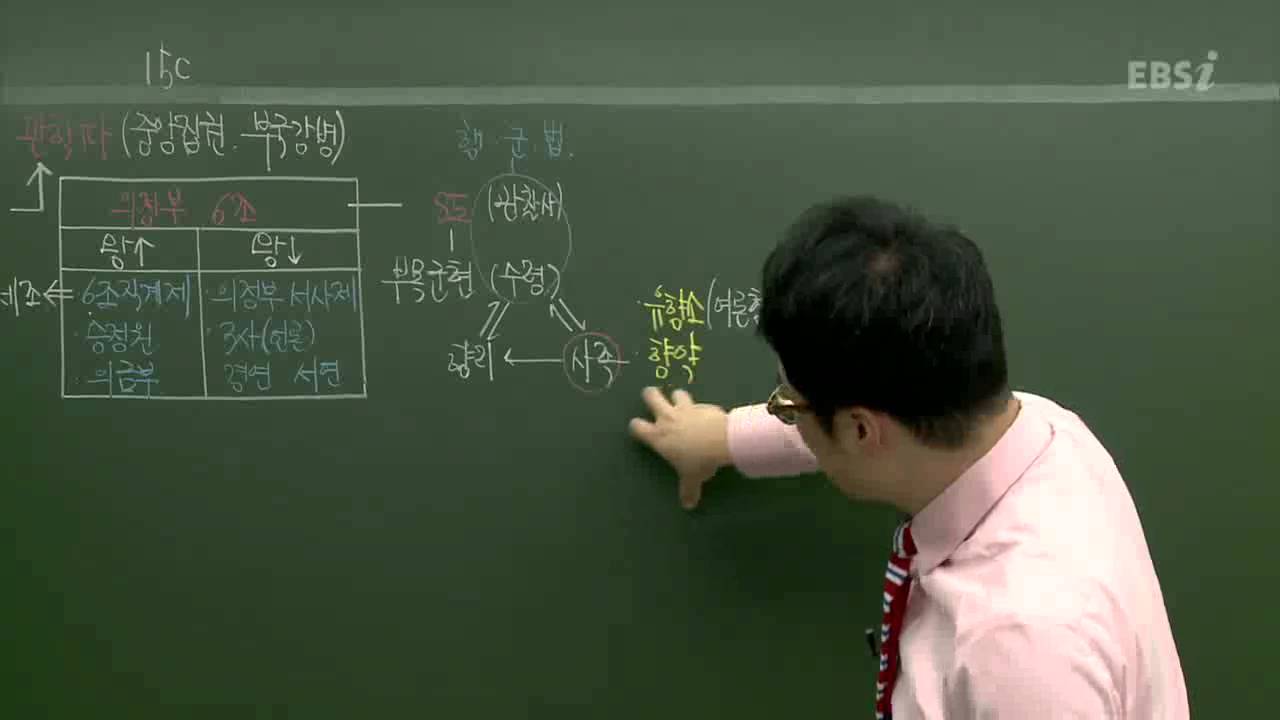 15C
EBSi
관학파 (중앙집권. 부국강병)
행·군·법.
의정부 6조
8도 (관찰사)
왕↑ 왕↓
부목군현 (수령)
세조 ← 6조직계제 · 의정부 서사제
· 유향소 (여론
승정원 · 3사(언론)
향리 ← 사족 · 향약
· 의금부 경연 서연